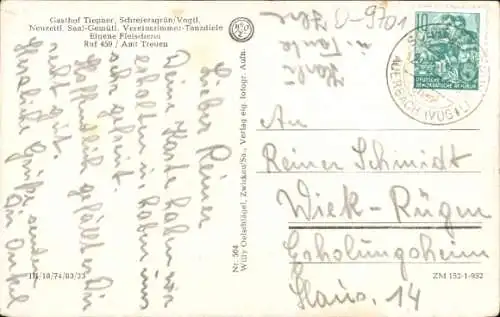 Gasthof Tiepner, Schreiersgrün/Vogtl.
Neuzeitl. Saal-Gemütl. Vereinszimmer-Tanzdiele
Eigene Fleischerei
Ruf 459 / Amt Treuen
Lieber Reiner
Deine Karte haben wir
erhalten u. haben uns
sehr gefreut.
Hoffentlich gefällt es Dir
recht gut.
Herzliche Grüße senden
Dir Onkel
u. Tante
III/18/74/83/23
Nr. 564
Willy Oelschlägel, Zwickau/Sa., Verlag eig. fotogr. Aufn.
10
DEUTSCHE
DEMOKRATISCHE REPUBLIK
AUERBACH (VOGTL)
An
Reiner Schmidt
Wiek-Rügen
Erholungsheim
Haus, 14
ZM 152-1-952